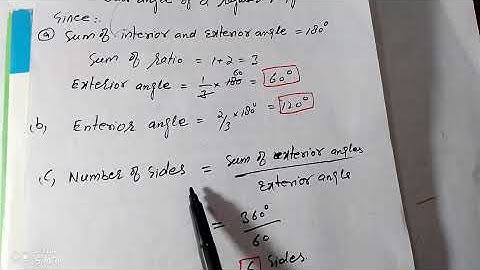 angle of a regular
Since:-
(a) Sum of interior and exterior angle = 180°
Sum of ratio = 1+2 = 3
Exterior angle = 1/3 × 180° 60 = 60°
(b), Enterior angle = 2/3 × 180° = 120°
(c), Number of sides = Sum of exterior angles / Exterior angle
= 360° / 60
6 sides.